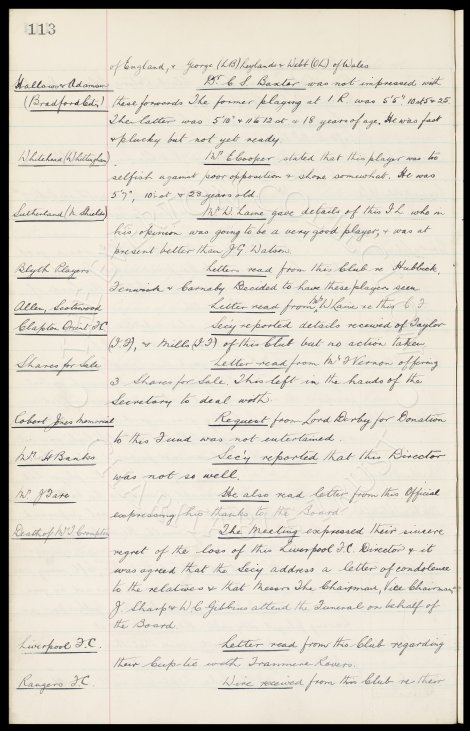 113
of England, & George (LB) Leylands & Webb (OL) of Wales
Hallows & Adamson Dr. C. S. Baxter was not impressed with
(Bradford City) these forwards The former playing at I.R. was 5'5" 10st 5 & 25.
The latter was 5'10" & 11st 12 at 18 years of age. He was fast
& plucky but not yet ready.
Whitehouse (Whittingham) Mr E Cooper stated that this player was too
selfish against poor opposition & shone somewhat. He was
5'7", 10½st & 23 years old.
Sutherland (N. Shields) Mr D. Laine gave details of this I L who in
his opinion was going to be a very good player, & was at
present better than J.G. Watson.
Blyth Players Letters read from this Club re Hubbuck,
Fenwick & Carnaby Decided to have these players seen
Allen, Scotswood Letter read from Mr W Laine re this C F
Clapton Orient F.C. Secy reported details received of Taylor
(I F), & Mills (I F) of this Club but no action taken
Shares for Sale Letter read from Mr F Vernon offering
3 Shares for Sale. This left in the hands of the
Secretary to deal with.
Cohort Jones Memorial Request from Lord Derby for Donation
to this Fund was not entertained.
Mr. H Banks Secy reported that this Director
was not so well.
Mr. J Fare He also read letter from this Official
expressing his thanks to the Board
Death of Mr J Crompton The Meeting expressed their sincere
regret of the loss of this Liverpool F.C. Director & it
was agreed that the Secy address a letter of condolence
to the relatives & that Messrs The Chairman, Vice Chairman
J. Sharp & W C Gibbins attend the Funeral on behalf of
the Board.
Liverpool F.C. Letter read from this Club regarding
their Cup-tie with Tranmere Rovers.
Rangers F.C. Wire received from this Club re their